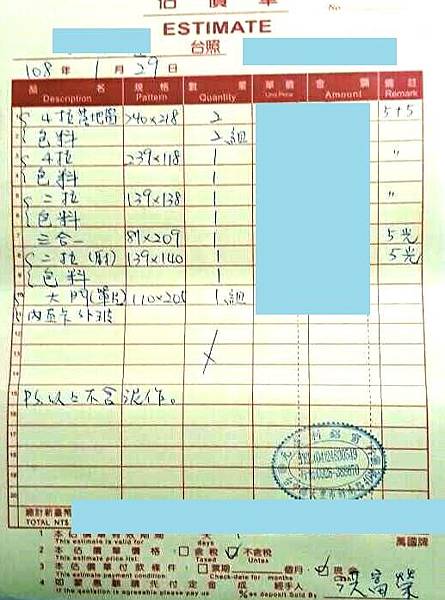 估價單
No
ESTIMATE
台照
108 年 1 月 29 日
品名 規格 數量 單價 金額 備註
Description Pattern Quantity Unit Price Amount Remark
1 4拉落地窗 240×218 2 5+5
2 包料 2組
3 4拉 239×118 1 〃
4 包料 1
5 二拉 139×138 1 〃
6 包料 1
7 三合一 81×209 1 5光
8 二拉(廚) 139×140 1 5光
9 包料 1
10 大門(單片) 110×205 1組
11
12
13
14
15 PS以上不含泥作。
16
17
18
19
20
總計新臺幣
TOTAL NT$
1 本估價單有效期間 天 萬國牌
This estimate is valid for days
2 本估價單價格: 含稅 不含稅
This estimate price Taxed Untax
3 本估價單付款條件: 票期 個月 現
This estimate payment condition: Check-date for months
4 如蒙惠顧請先付定金 成 經手人
If the quotation is agreeable please pay us %as deposit Sold By